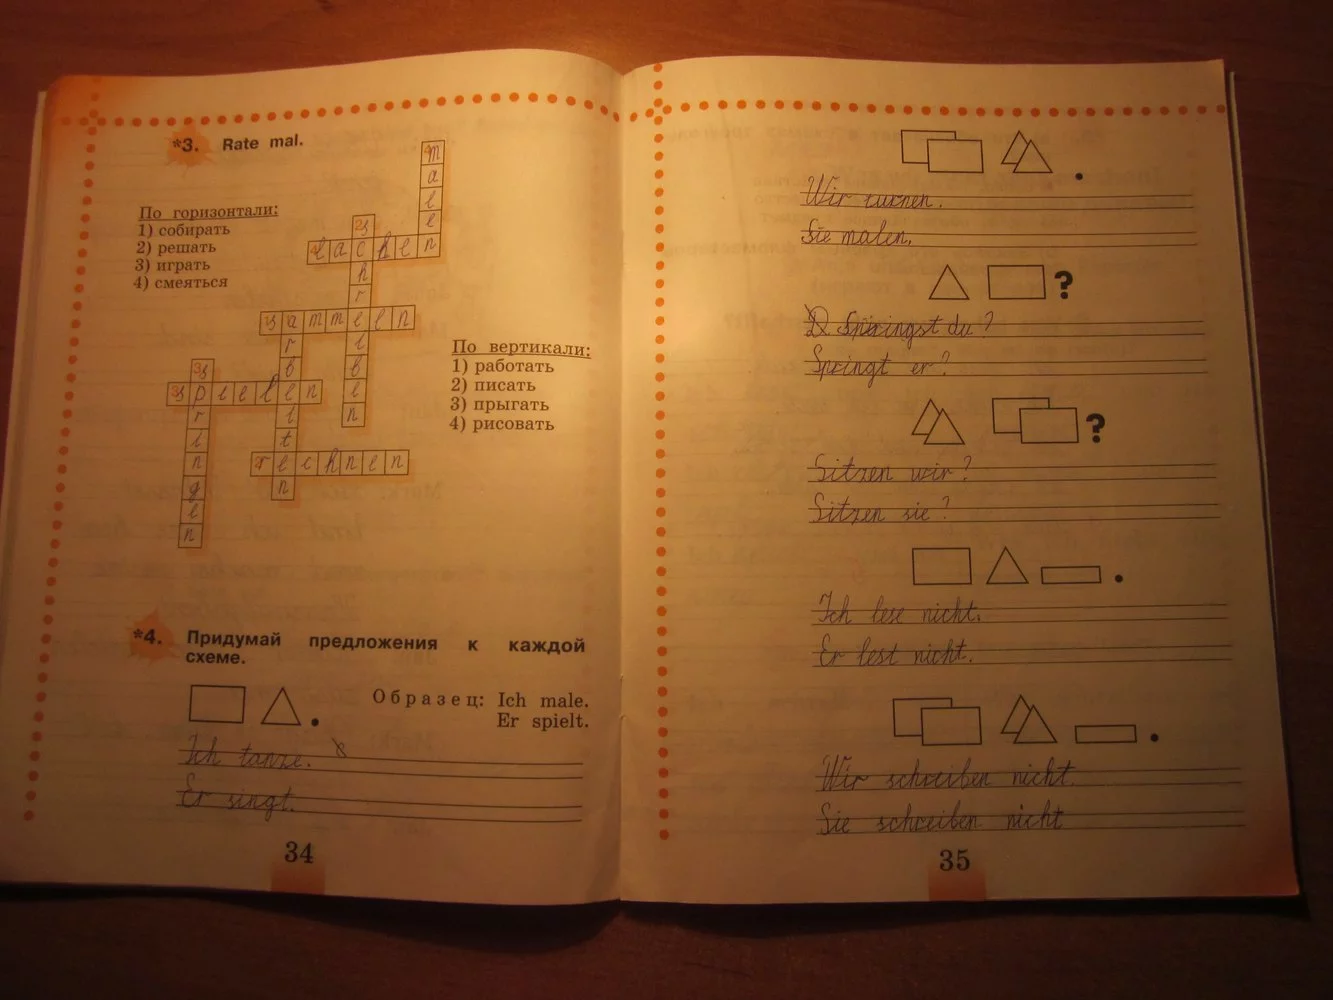 *3. Rate mal.
По горизонтали:
1) собирать
2) решать
3) играть
4) смеяться
malen
lachen
schreiben
sammeln
arbeiten
spielen
springen
rechnen
По вертикали:
1) работать
2) писать
3) прыгать
4) рисовать
*4. Придумай предложения к каждой
схеме.
Образец: Ich male.
Er spielt.
Ich tanze.
Er singt.
34
.
Wir turnen.
Sie malen.
?
Springst du?
Springt er?
?
Sitzen wir?
Sitzen sie?
.
Ich lese nicht.
Er lest nicht.
.
Wir schreiben nicht.
Sie schreiben nicht
35